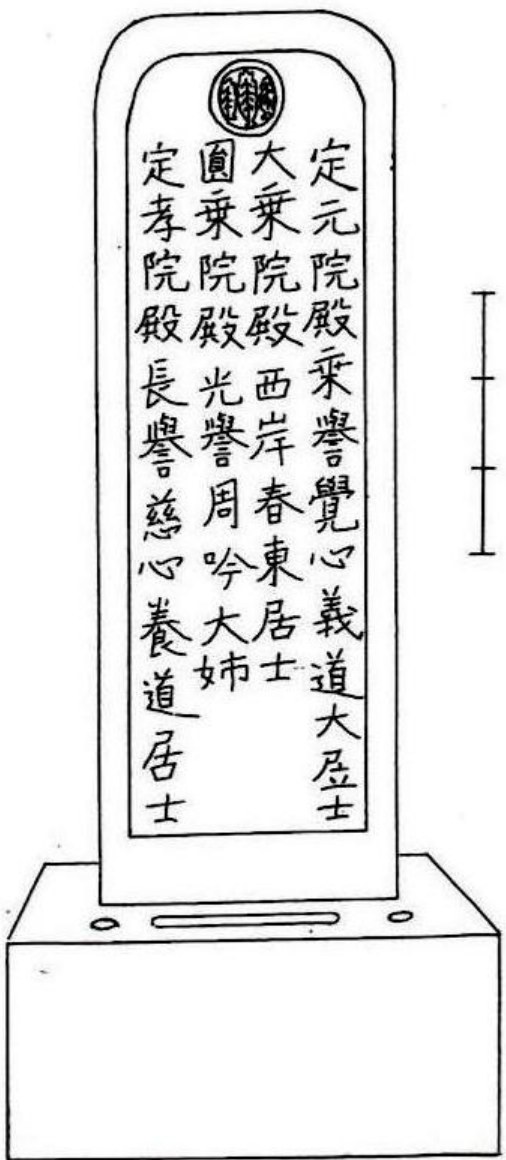 定元院殿乗譽覺心義道大居士
大乗院殿西岸春東居士
圓乗院殿光譽周吟大姉
定孝院殿長譽慈心養道居士